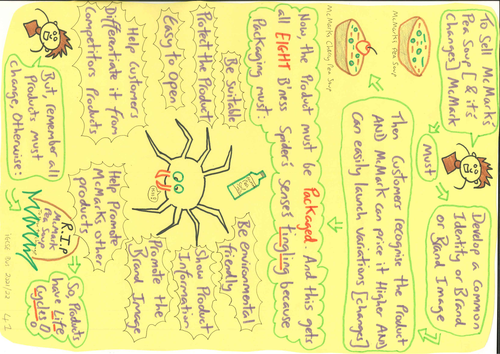 To Sell McMark's
Pea Soup [& it's
changes] McMark
Must
Develop a Common
Identity or Brand
or Brand Image
McMarks Pea Soup
McMarks Cherry Pea Soup
Then Customers recognise the Product
AND McMark can price it Higher AND
Can easily launch variations [changes]
Now the Product must be Packaged. And this gets
all EIGHT B'ness Spider's senses tingling because
Packaging must:
Be Suitable
Protect the Product
Easy to Open
Help Customers
Differentiate it from
Competitors Products
Be environmental
friendly
Show Product
Information
Promote the
Brand Image
Help Promote
McMarks other
products
But remember all
Products must
change, Otherwise:
R.I.P
McMark
Pea Soup
So Products
have Life
Cycles!
2021/22
4.2